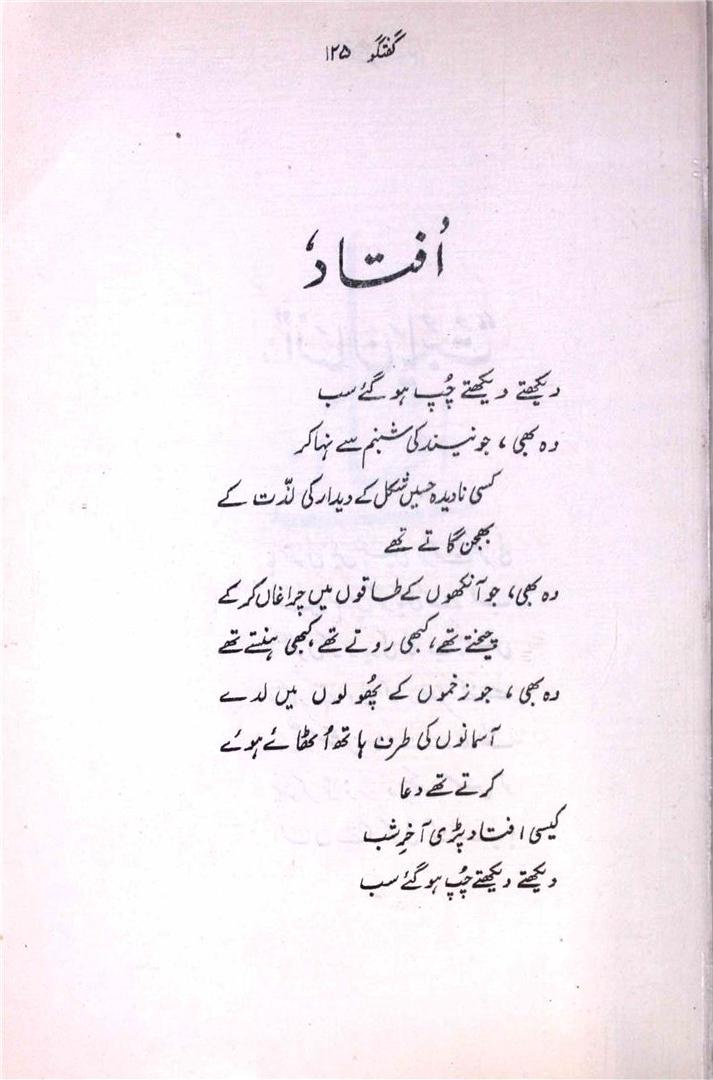 گفتگو ۱۲۵
اُفتاد
دیکھتے دیکھتے چُپ ہو گئے سب
وہ بھی، جو نیند کی شبنم سے نہا کر
کسی نادیدہ حسیں شکل کے دیدار کی لذّت کے
بھجن گاتے تھے
وہ بھی، جو آنکھوں کے طاقوں میں چراغاں کر کے
چیختے تھے، کبھی روتے تھے، کبھی ہنستے تھے
وہ بھی، جو زخموں کے پھُولوں میں لدے
آسمانوں کی طرف ہاتھ اُٹھائے ہوئے
کرتے تھے دعا
کیسی افتاد پڑی آخرِ شب
دیکھتے دیکھتے چُپ ہو گئے سب